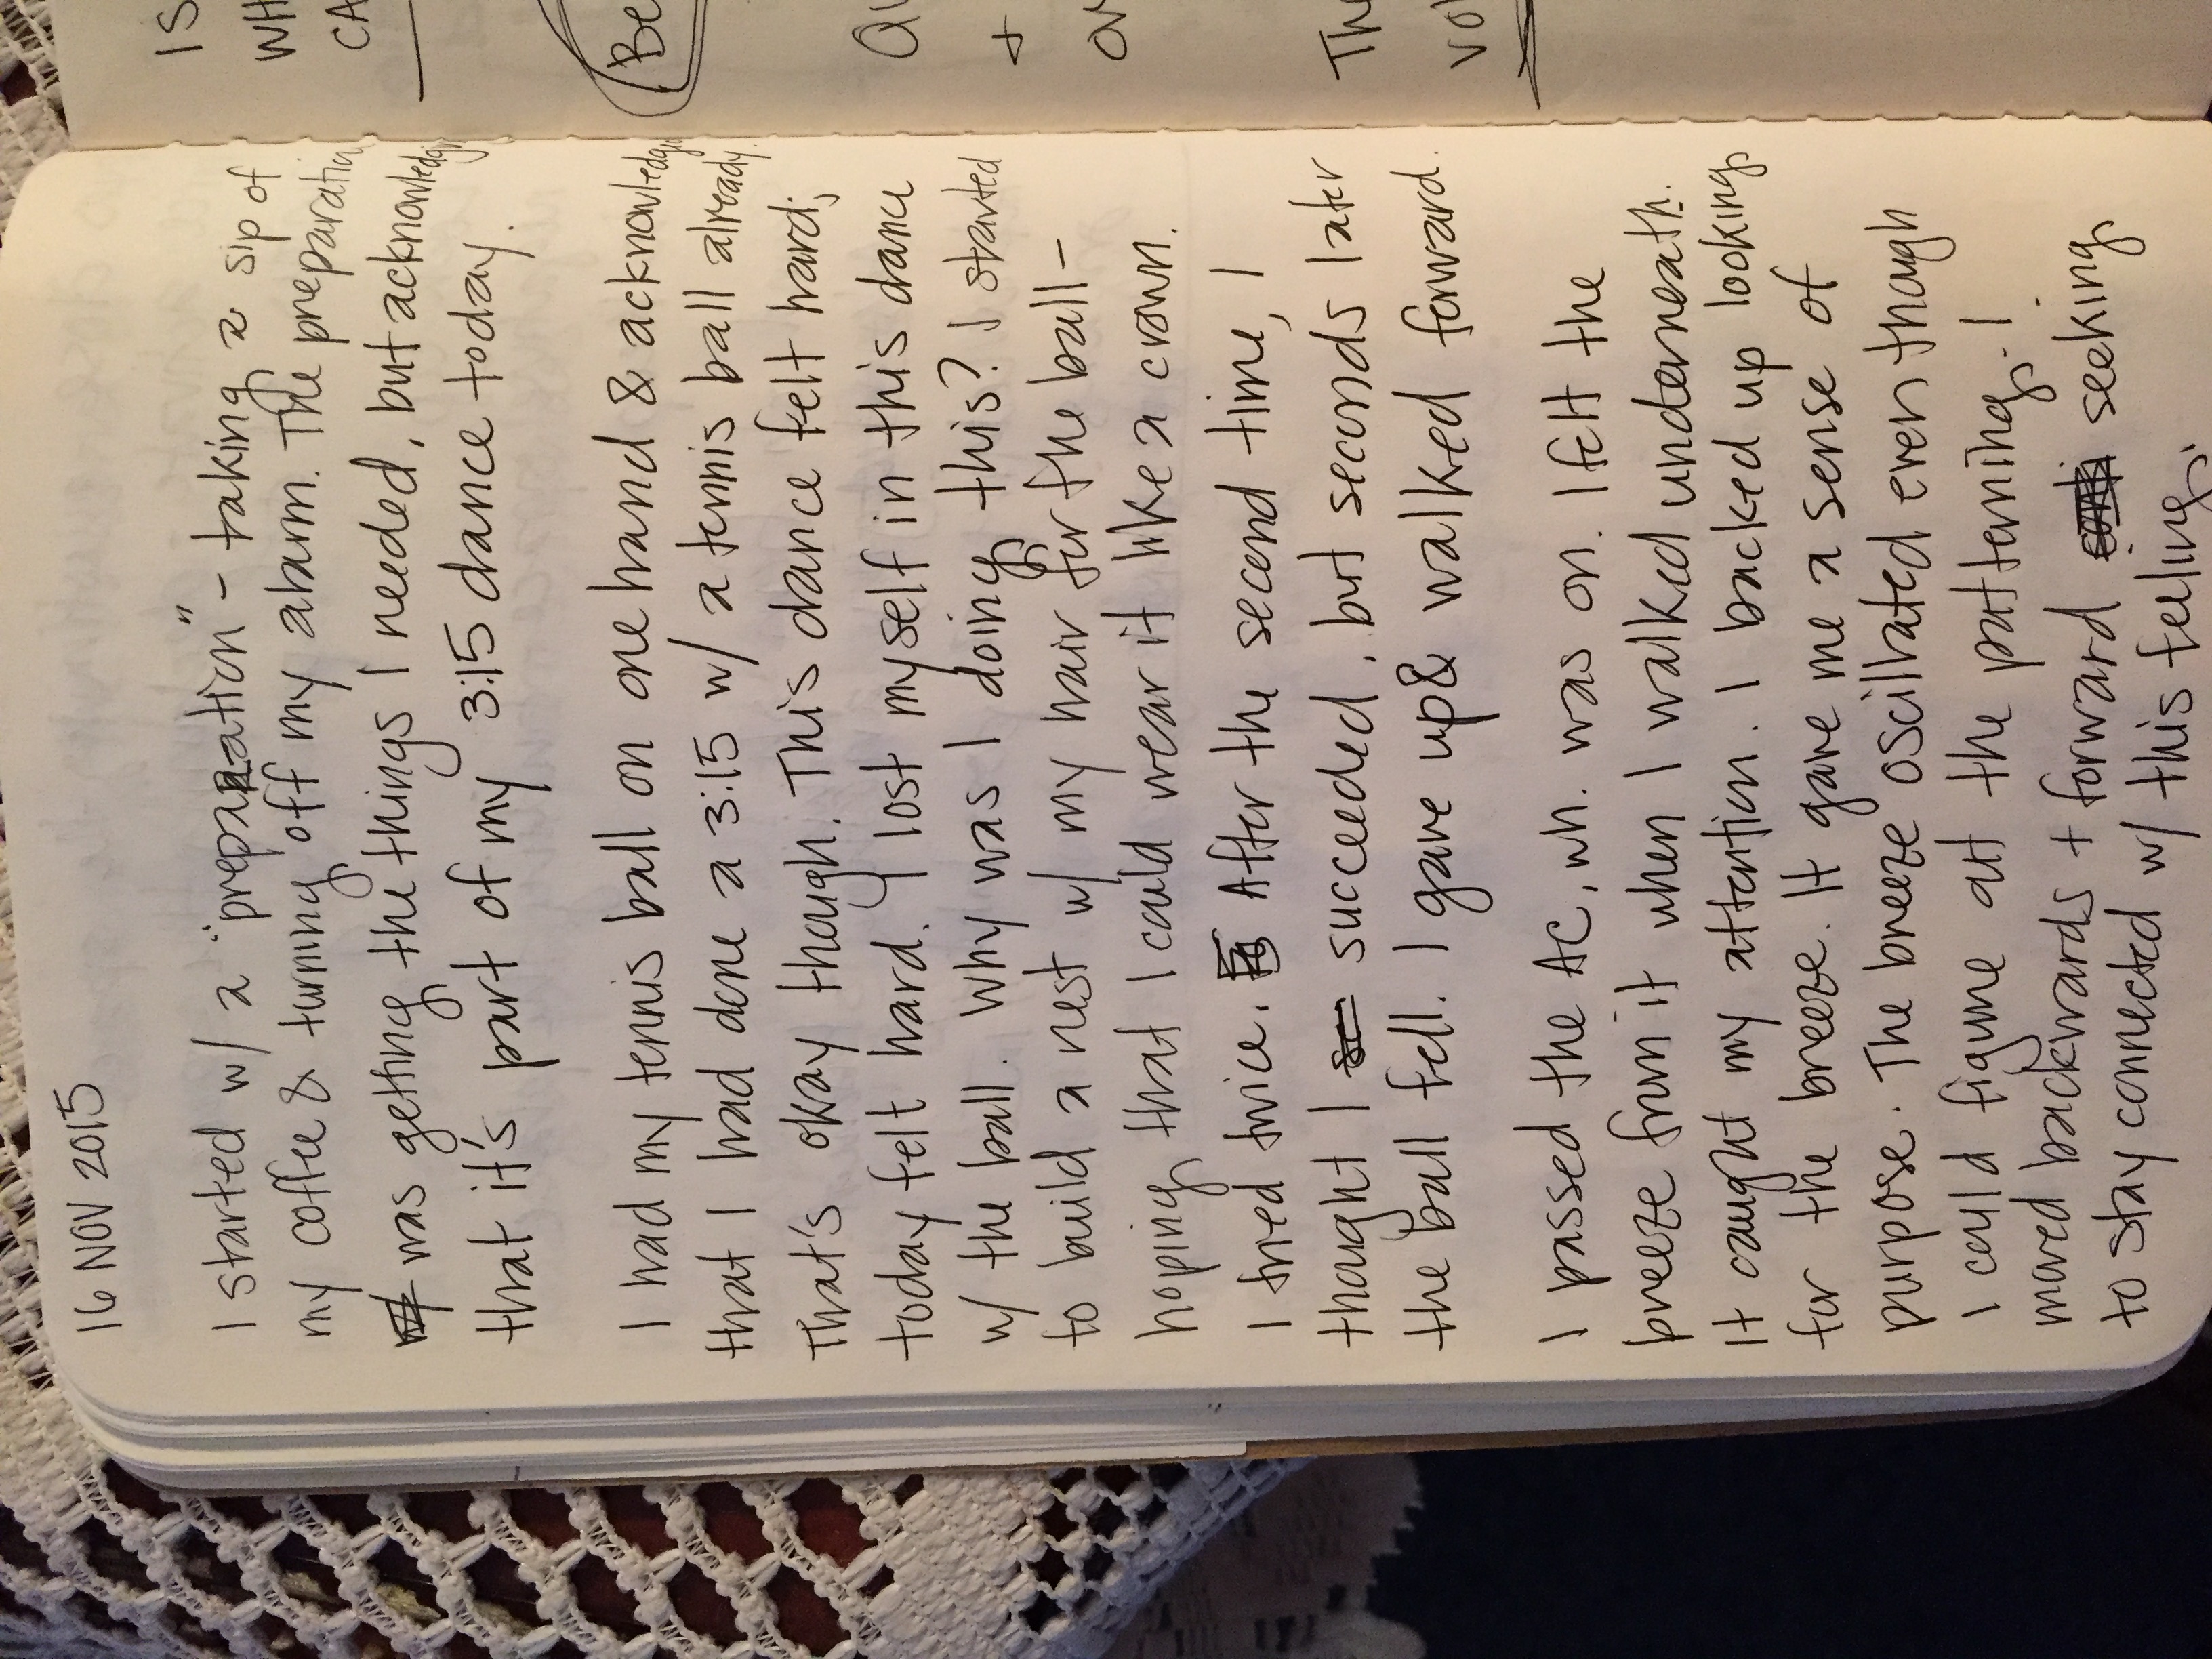 16 NOV 2015
I started w/ a "preparation" - taking a sip of
my coffee & turning off my alarm. The preparation
was getting the things I needed, but acknowledging
that it's part of my 3:15 dance today.
I had my tennis ball on one hand & acknowledging
that I had done a 3:15 w/ a tennis ball already.
That's okay though. This dance felt hard;
today felt hard. I lost myself in this dance
w/ the ball. Why was I doing this? I started
to build a nest w/ my hair for the ball-
hoping that I could wear it like a crown.
I tried twice. After the second time, I
thought I succeeded, but seconds later
the ball fell. I gave up & walked forward.
I passed the AC, wh. was on. I felt the
breeze from it when I walked underneath.
It caught my attention. I backed up looking
for the breeze. It gave me a sense of
purpose. The breeze oscillated even though
I could figure out the patterning. I
moved backwards + forward seeking
to stay connected w/ this feeling.
IS
WH
CA
Be
Qu
+
ov
The
VOI